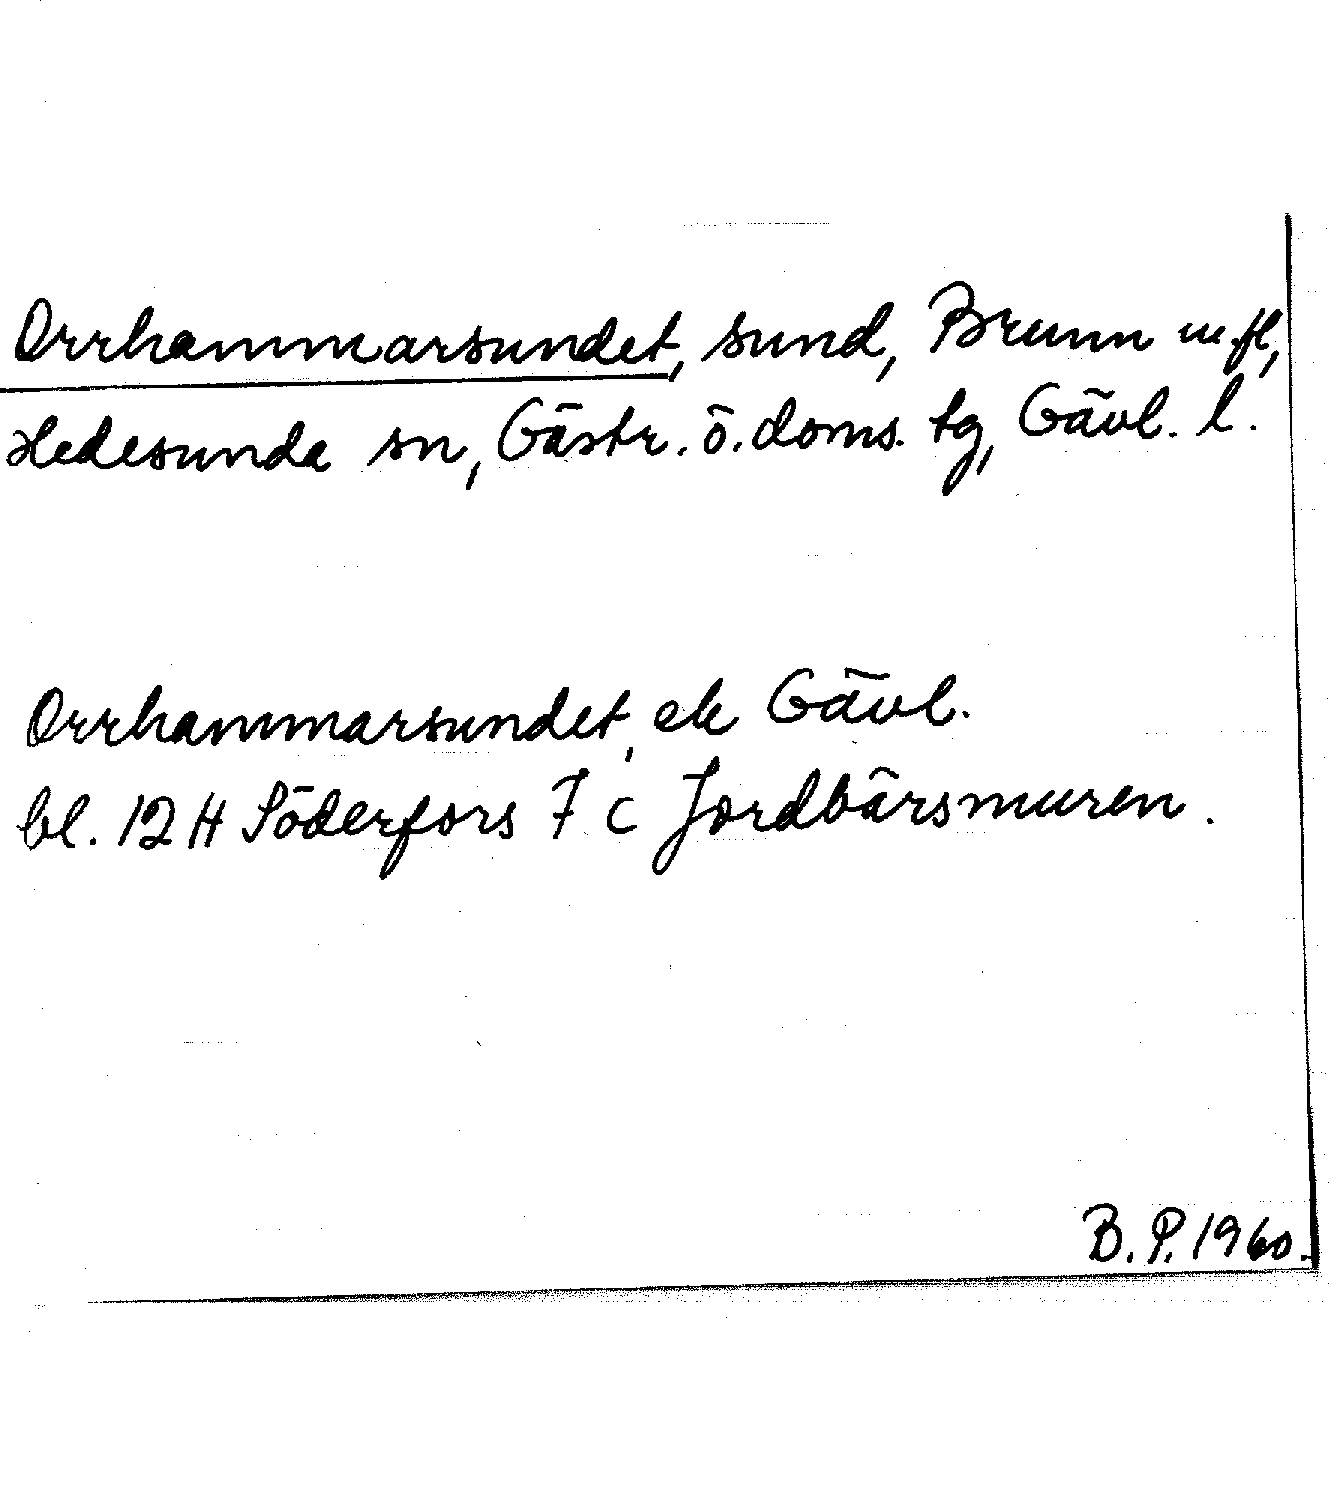 Orrhammarsundet, sund, Brunn m.fl,
Hedesunda sn, Gästr. ö. doms. tg, Gävl. l.
Orrhammarsundet, ek Gävl.
bl. 12 H Söderfors 7 c Jordbärsmuren.
B. P. 1960.